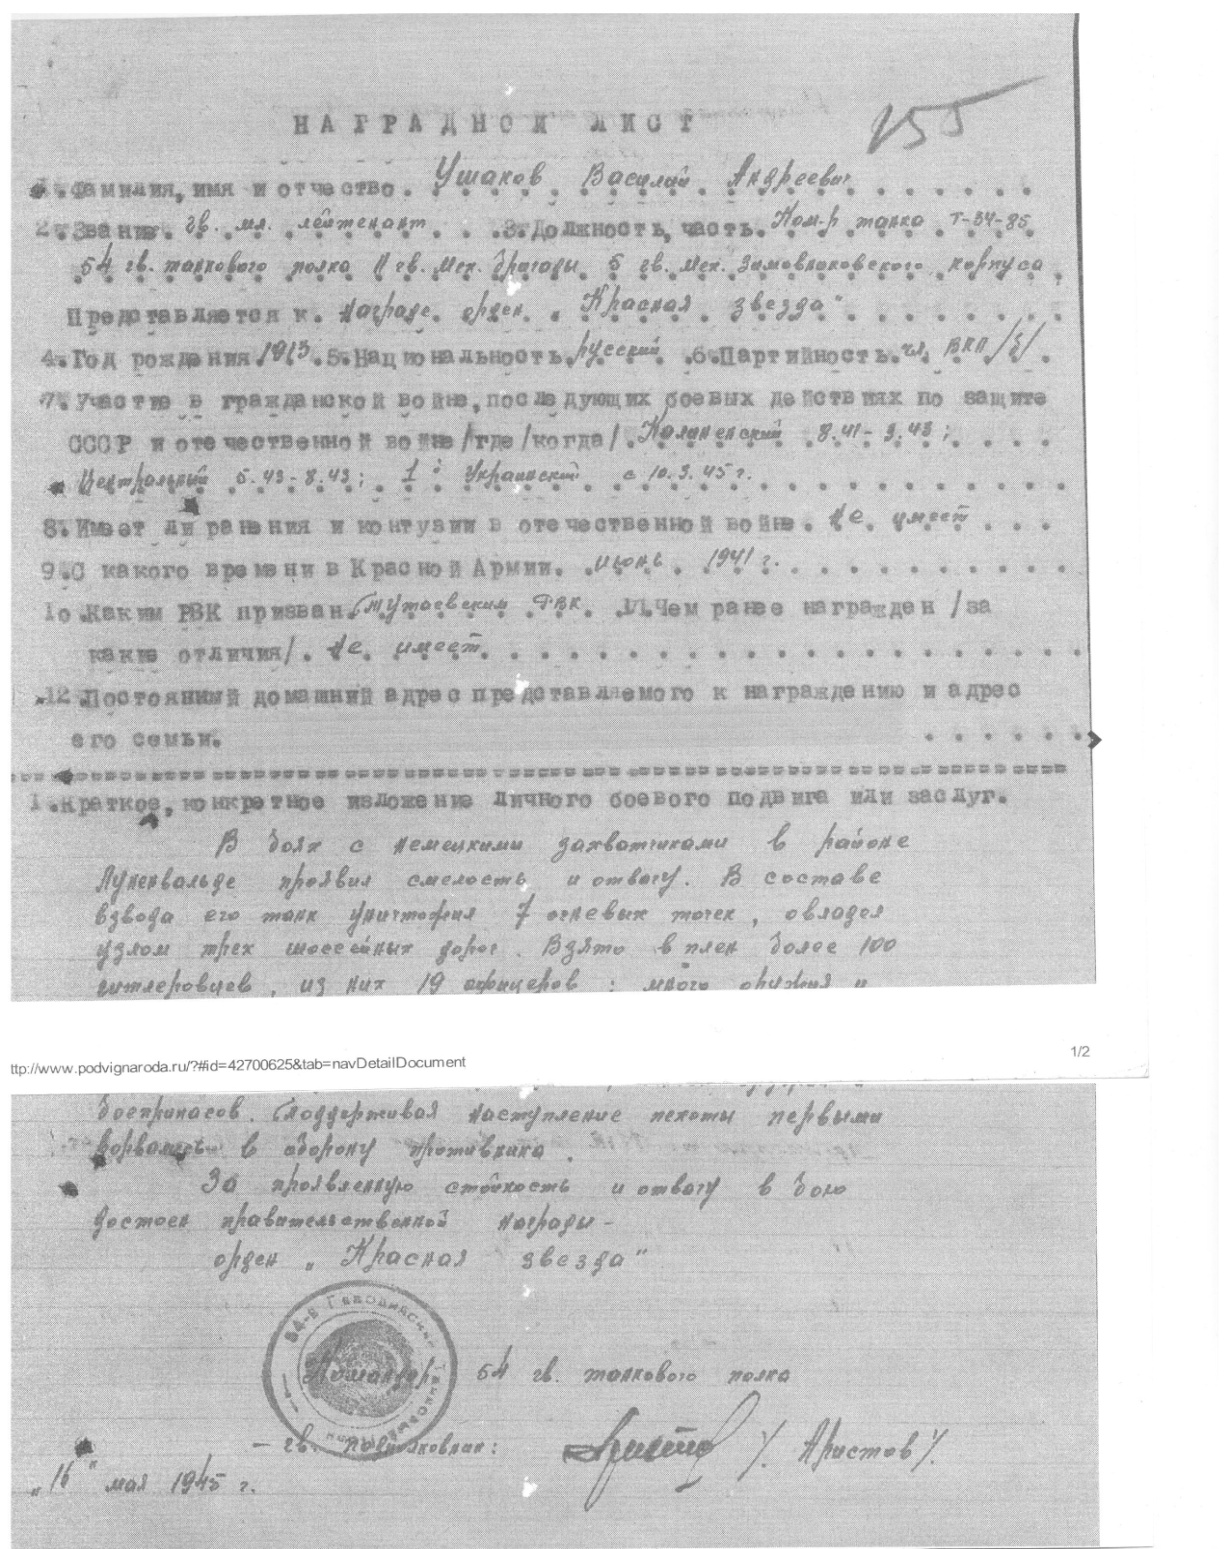 155
НАГРАДНОЙ ЛИСТ
1. Фамилия, имя и отчество. Ушаков Василий Андреевич
2. Звание. гв. мл. лейтенант 3. Должность, часть. Ком-р танка Т-34-85
54 гв. танкового полка 11 гв. мех. бригады 5 гв. мех. Зимовниковского корпуса
Представляется к. награде орден "Красная звезда"
4. Год рождения 1913. 5. Национальность. русский. 6. Партийность. чл. ВКП/б/.
7. Участие в гражданской войне, последующих боевых действиях по защите
СССР и отечественной войне /где/когда/. Калиненский 8.41-3.43;
Центральный 5.43-8.43; 1й Украинский с 10.3.45 г.
8. Имеет ли ранения и контузии в отечественной войне. не имеет
9. С какого времени в Красной Армии. июнь 1941 г.
10. Каким РВК призван. Тутаевским РВК. 11. Чем ранее награжден /за
какие отличия/. не имеет
12. Постоянный домашний адрес представляемого к награждению и адрес
его семьи.
1. Краткое, конкретное изложение личного боевого подвига или заслуг.
В боях с немецкими захватчиками в районе
Лукенвальде проявил смелость и отвагу. В составе
взвода его танк уничтожил 7 огневых точек, овладел
узлом трех шоссейных дорог. Взято в плен более 100
гитлеровцев, из них 19 офицеров; много оружия и
ttp://www.podvignaroda.ru/?#id=42700625&tab=navDetailDocument
1/2
боеприпасов. Поддерживая наступление пехоты первыми
ворвались в оборону противника.
За проявленную стойкость и отвагу в бою
достоен правительственной награды -
орден "Красная звезда"
54-й Гвардейский Танковый
Командир 54 гв. танкового полка
- гв. подполковник: /Аристов/.
"16" мая 1945 г.